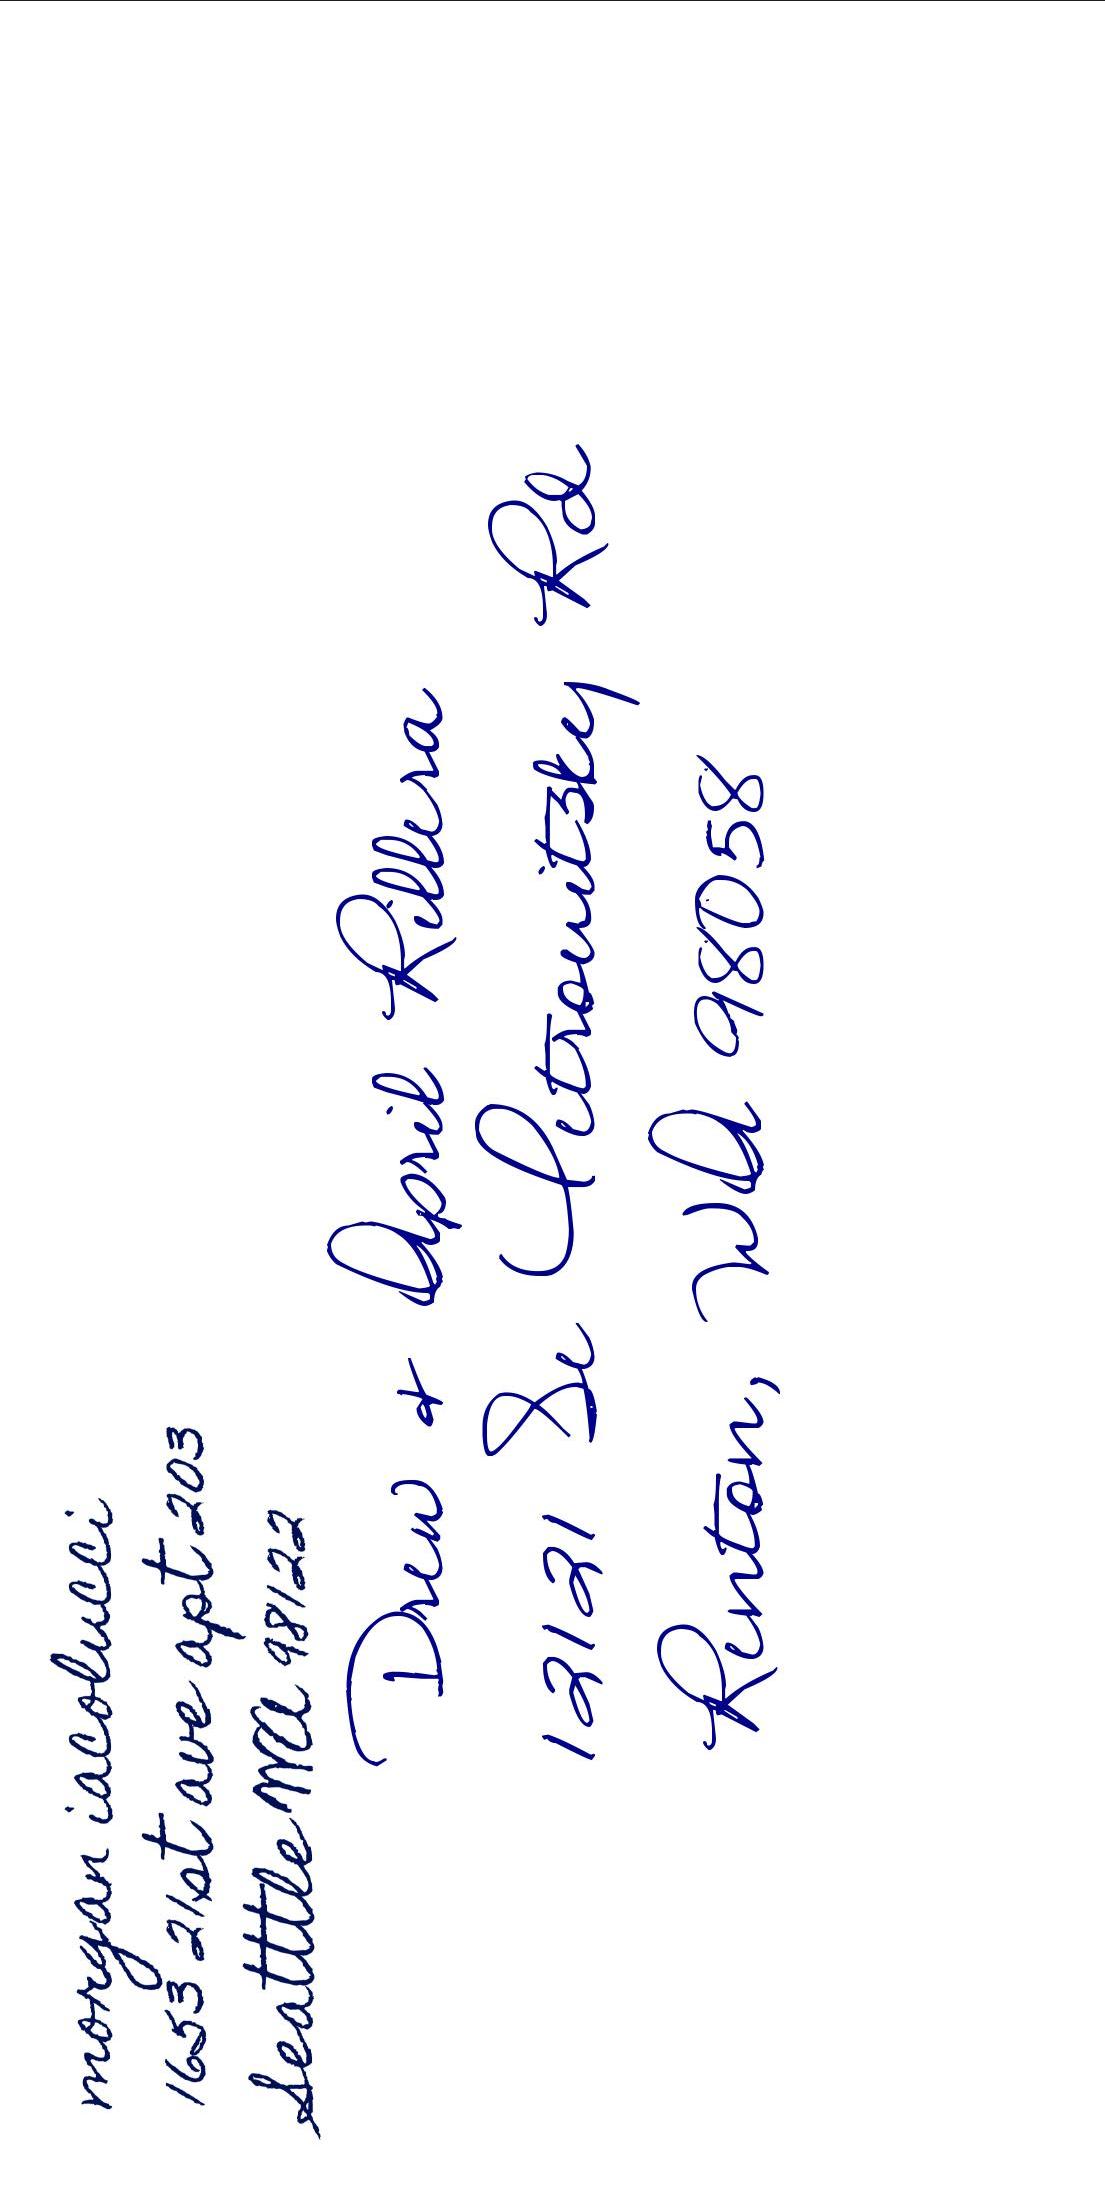 morgan iacolucci
1653 21st ave apt 203
Seattle WA 98122
Drew & April Rillera
12121 Se Petrovitsky Rd
Renton, WA 98058